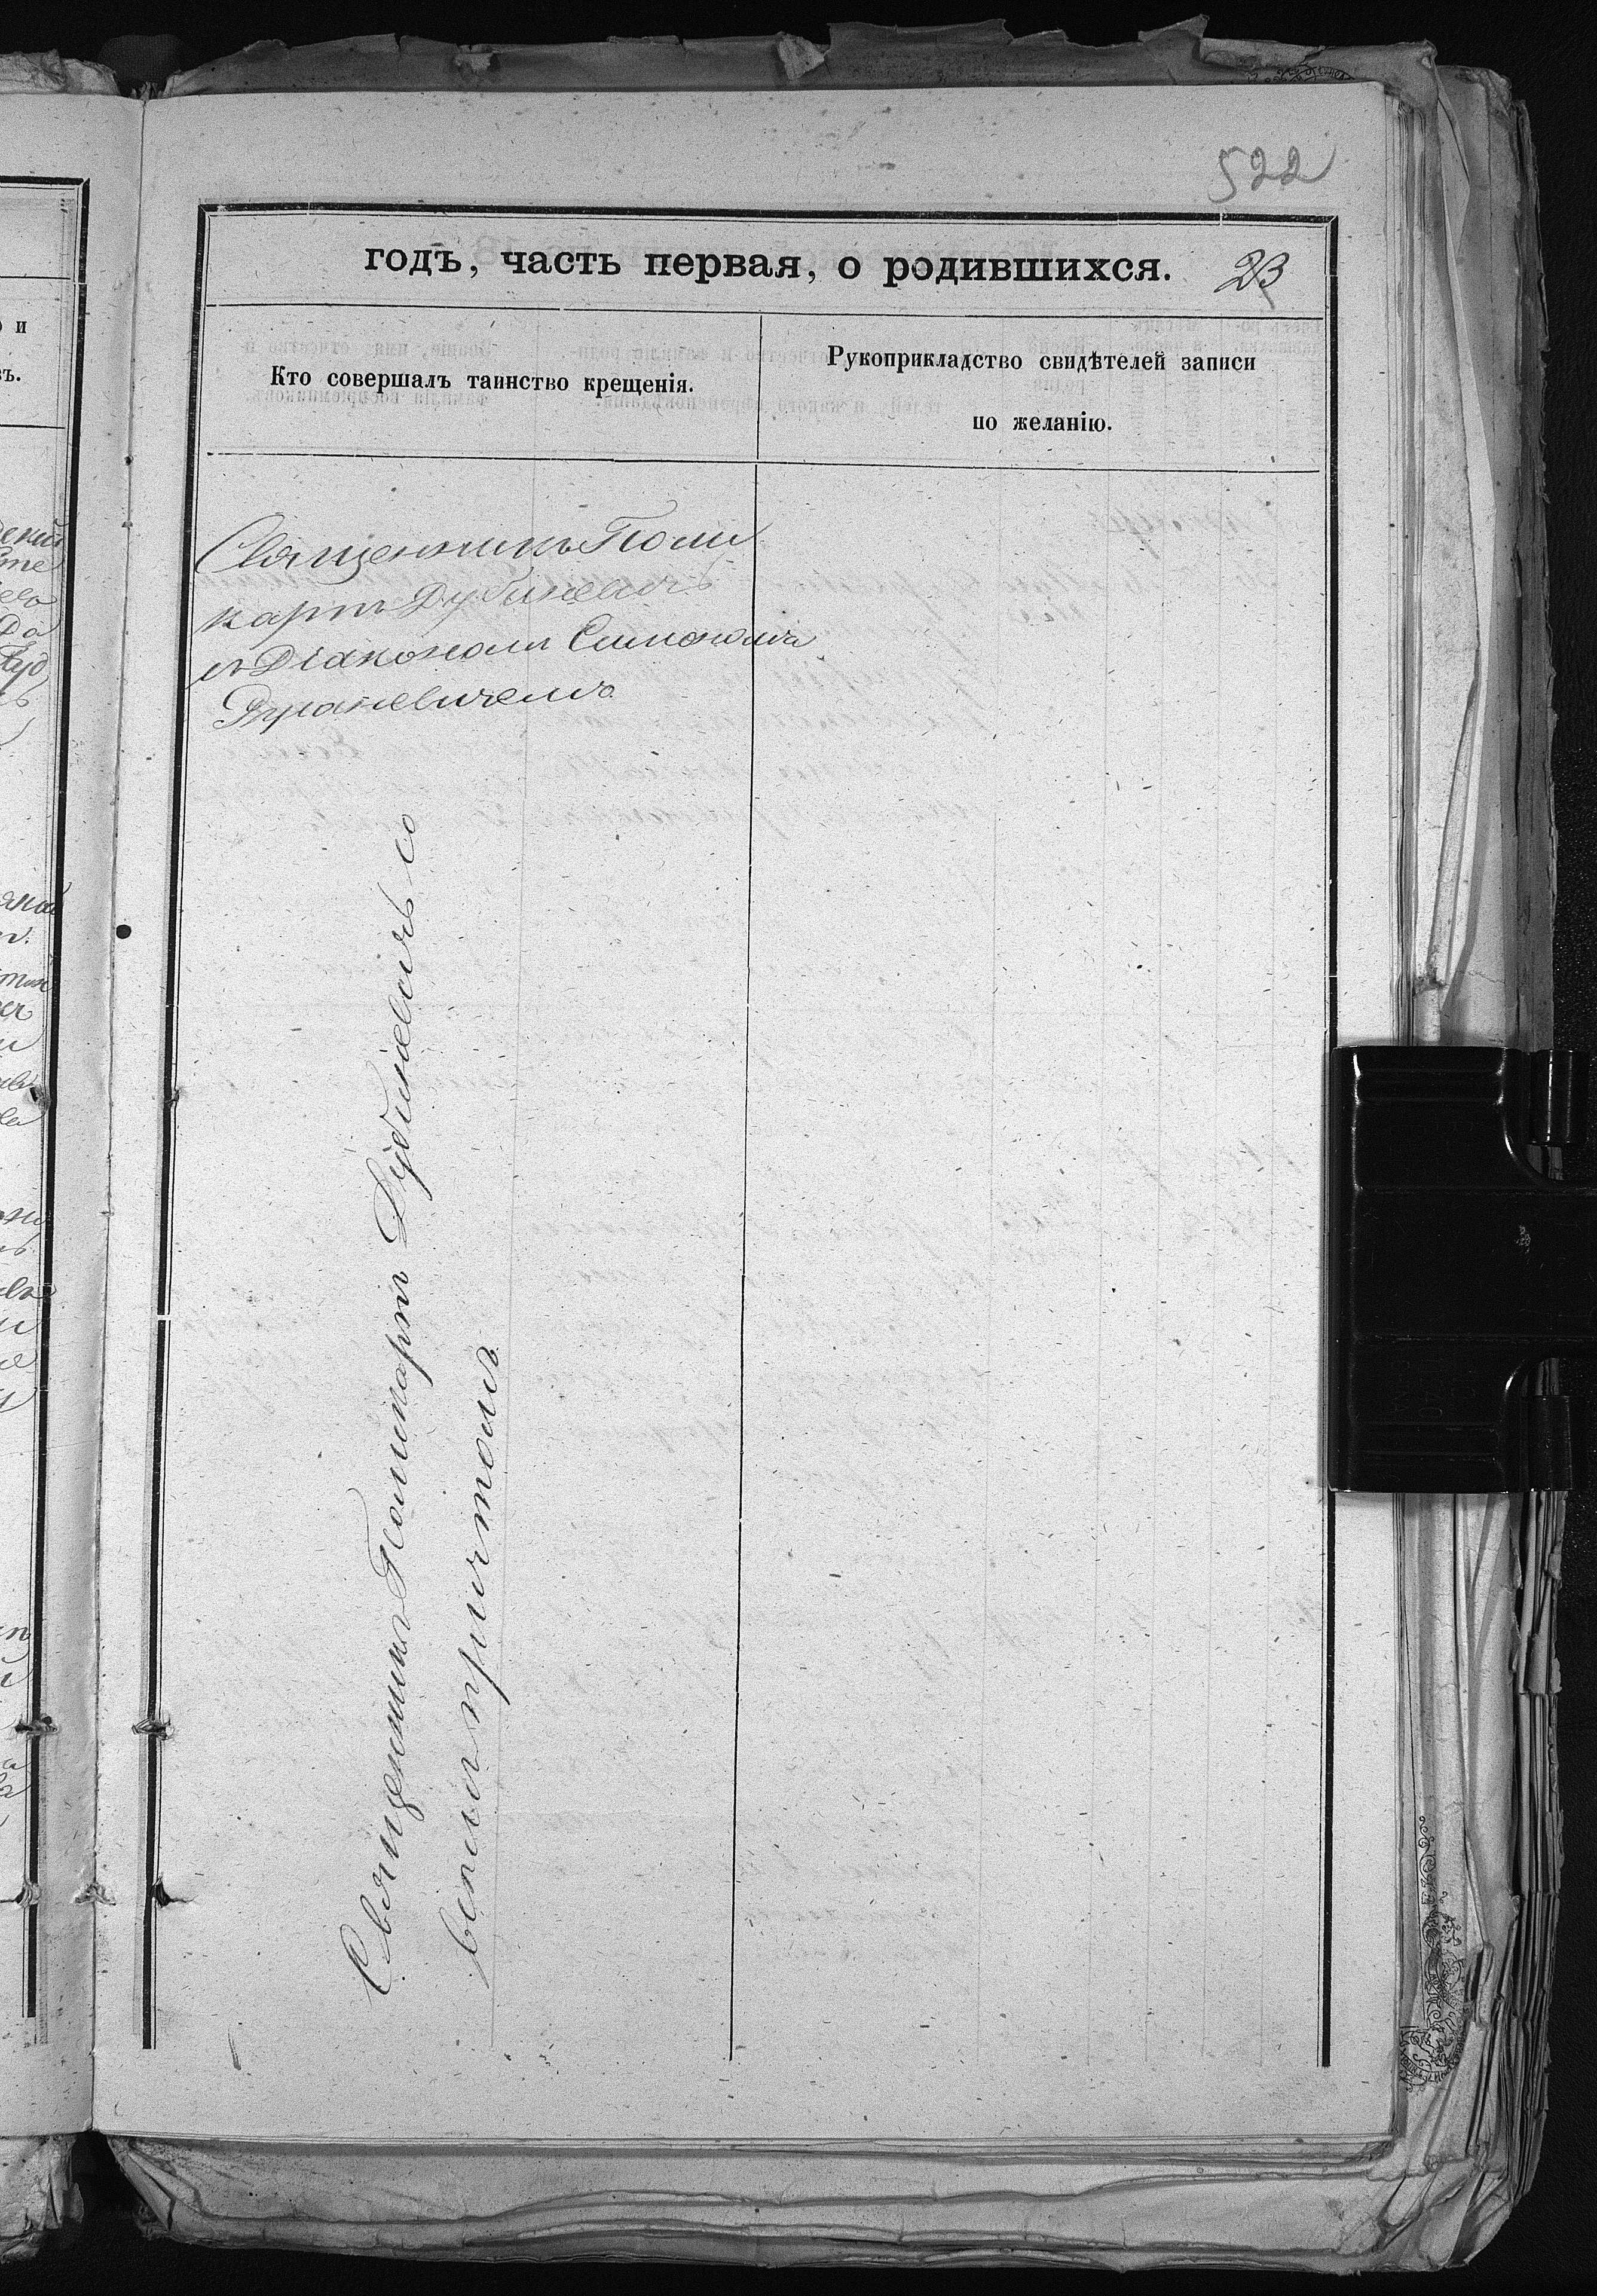 522
годъ, часть первая, о родившихся.
23
Кто совершалъ таинство крещенія.
Рукоприкладство свидѣтелей записи
по желанію.
Священникъ Поли
карпъ Дубиневичъ
съ Діакономъ Симономъ
Священникъ Поликарпъ Дубиневичъ со
всѣмъ причтомъ